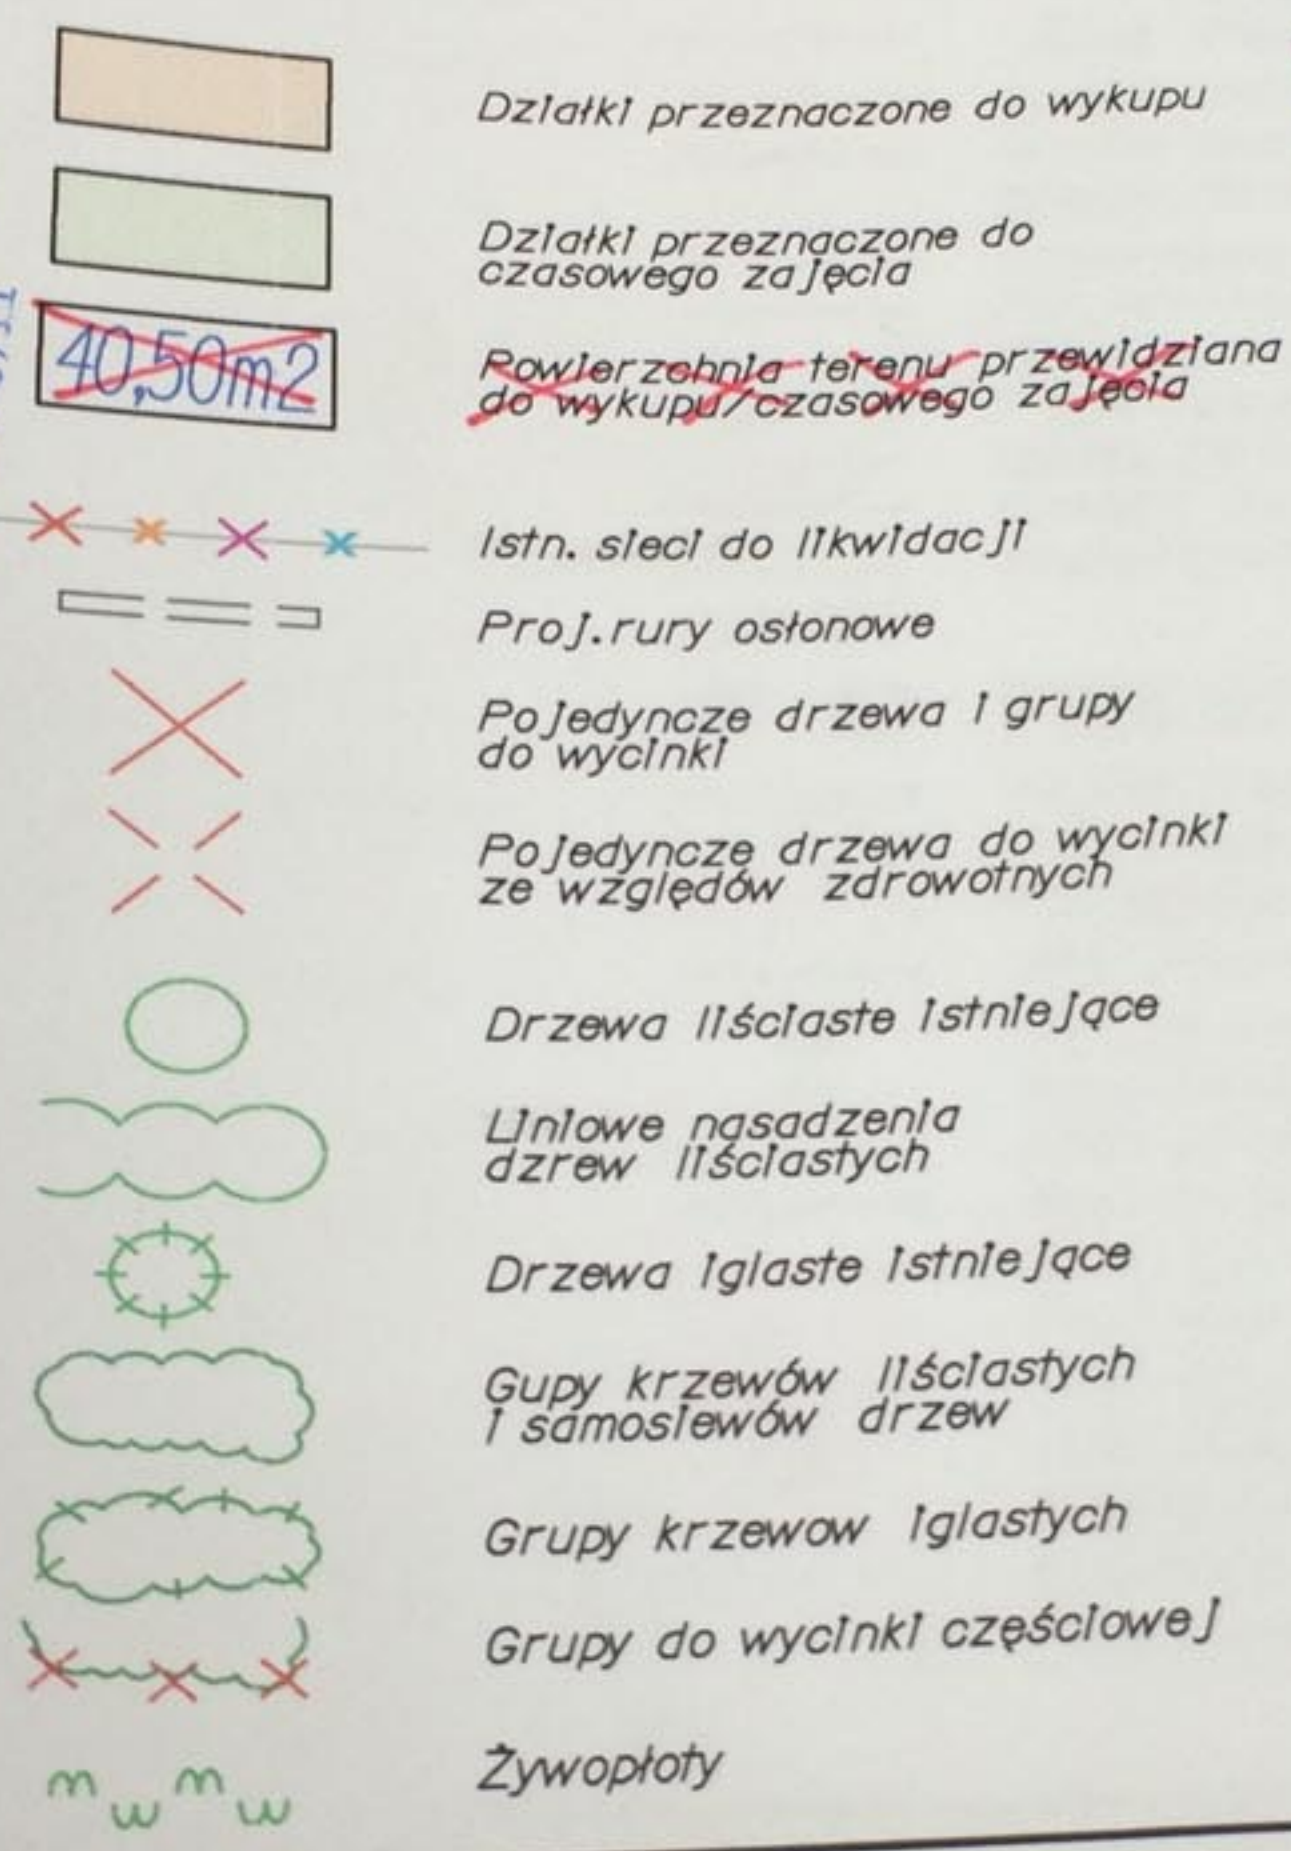 Działki przeznaczone do wykupu
Działki przeznaczone do
czasowego zajęcia
40,50m2
Powierzchnia terenu przewidziana
do wykupu/czasowego zajęcia
Istn. sieci do likwidacji
Proj.rury osłonowe
Pojedyncze drzewa i grupy
do wycinki
Pojedyncze drzewa do wycinki
ze względów zdrowotnych
Drzewa liściaste istniejące
Liniowe nasadzenia
dzrew liściastych
Drzewa iglaste istniejące
Gupy krzewów liściastych
i samosiewów drzew
Grupy krzewow iglastych
Grupy do wycinki częściowej
Żywopłoty